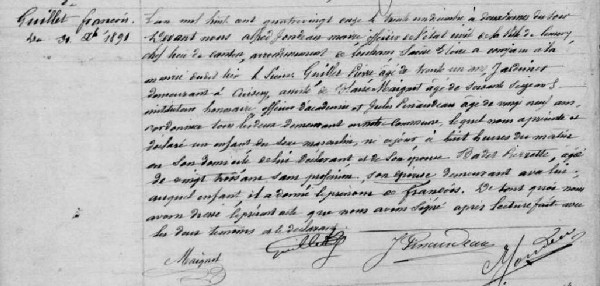 Guillet françois
Du 31 Xbre 1891
L'an mil huit cent quatrevingt onze le trente un décembre à deux heures du soir
Devant nous Jondeau maire officier de l'état civil de la ville de
chef lieu de canton, arrondissement de Louhans Saône et Loire a comparu à la
Guillet Pierre âgé de trente un ans, Jardinier
demeurant à Cuisery, assisté de Maignot age de soixante
instituteur honoraire, officier d'académie et Jules Renaudeau age de vingt neuf ans,
cordonnier tous les deux demeurant en notre Commune, lequel nous a présenté et
déclaré un enfant du sexe masculin, né ce jour à huit heures du matin
en son domicile de lui déclarant et de son épouse Badet Pierrette, agée
de vingt trois ans sans profession, son épouse demeurant avec lui,
auquel enfant il a donné le prénom de françois. De tout quoi nous
avons dressé le présent acte que nous avons signé après lecture fait avec
les deux témoins et le déclarant
Maignot Guillet J Renaudeau Jondeau